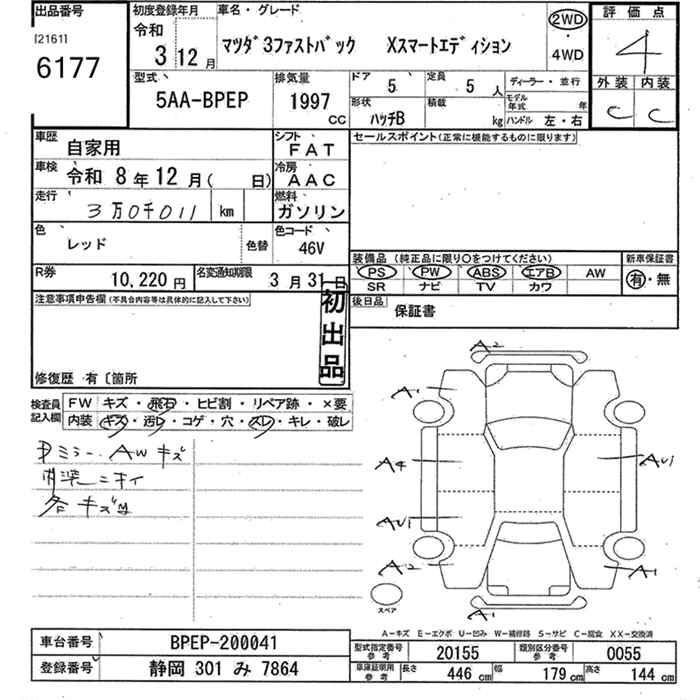 出品番号 初度登録年月 車名・グレード 評価点
[2161] 6177 令和 3 12月 マツダ3ファストバック Xスマートエディション 2WD・4WD 4
型式 排気量 ドア 定員 ディーラー・並行 外装 内装
5AA-BPEP 1997 cc 5 5人 モデル年式 年 C C
形状 ハッチB 積載 kg ハンドル 左・右
車歴 自家用 シフト FAT セールスポイント(正常に機能するものに限ります)
車検 令和 8年12月( 日) 冷房 AAC
走行 3万0千011 km 燃料 ガソリン
色 レッド 色替 色コード 46V
装備品 (純正品に限り○をつけてください) 新車保証書
PS PW ABS エアB AW 有・無
SR ナビ TV カワ
R券 10,220円 名変通知期限 3月31日
後日品 保証書
注意事項申告欄(不具合内容等は具体的に記入して下さい)
初出品
修復歴 有〔箇所
検査員記入欄 FW キズ・飛石・ヒビ割・リペア跡・×要
内装 キズ・汚レ・コゲ・穴・スレ・キレ・破レ
ドミラー、AWキズ
内装ニオイ
各キズ凹
A2
A1
A4
AU1
AU1
A2
A1
A1
スペア
A-キズ E-エクボ U-凹み W-補修跡 S-サビ C-腐食 XX-交換済
車台番号 BPEP-200041 型式指定番号 参考 20155 類別区分番号 参考 0055
登録番号 静岡 301 み 7864 車庫証明用 参考 長さ 446 cm 幅 179 cm 高さ 144 cm